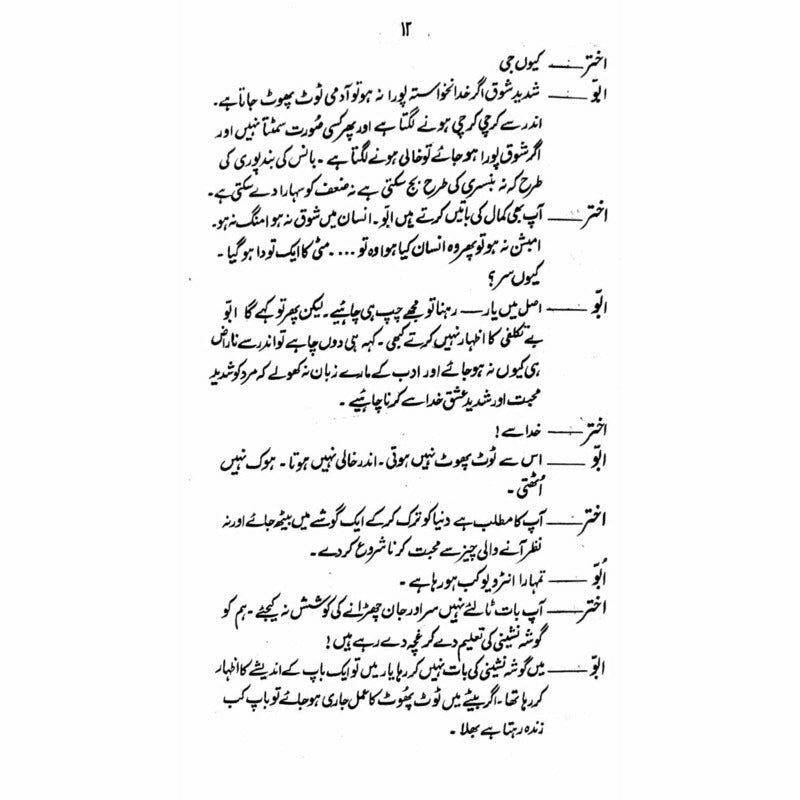 ۱۲
اختر ــــ کیوں جی
ابّو ــــ شدید شوق اگر خدانخواستہ پورا نہ ہو تو آدمی ٹوٹ پھوٹ جاتا ہے۔
اندر سے کرچی کرچی ہونے لگتا ہے اور پھر کسی صُورت سمٹتا نہیں اور
اگر شوق پورا ہو جائے تو خالی ہونے لگتا ہے۔ بانس کی بند پوری کی
طرح کہ نہ بنسری کی طرح بج سکتی ہے نہ ضعف کو سہارا دے سکتی ہے۔
اختر ــــ آپ بھی کمال کی باتیں کرتے ہیں ابّو۔ انسان میں شوق نہ ہو امنگ نہ ہو۔
امبیشن نہ ہو تو پھر وہ انسان کیا ہوا وہ تو .... مٹی کا ایک تودا ہو گیا۔
کیوں سر؟
ابّو ــــ اصل میں یار — رہنا تو مجھے چپ ہی چاہئیے۔ لیکن پھر تو کہے گا ابّو
بے تکلفی کا اظہار نہیں کرتے کبھی۔ کہہ ہی دوں چاہے تو اندر سے ناراض
ہی کیوں نہ ہو جائے اور ادب کے مارے زبان نہ کھولے کہ مرد کو شدید
محبت اور شدید عشق خدا سے کرنا چاہئیے۔
اختر ــــ خدا سے!
ابّو ــــ اس سے ٹوٹ پھوٹ نہیں ہوتی۔ اندر خالی نہیں ہوتا۔ ہوک نہیں
اُٹھتی۔
اختر ــــ آپ کا مطلب ہے دنیا کو ترک کر کے ایک گوشے میں بیٹھ جائے اور نہ
نظر آنے والی چیز سے محبت کرنا شروع کر دے۔
ابُوّ ــــ تمہارا انٹرویو کب ہو رہا ہے۔
اختر ــــ آپ بات ٹالئے نہیں سر اور جان چھڑانے کی کوشش نہ کیجئے۔ ہم کو
گوشہ نشینی کی تعلیم دے کر غچہ دے رہے ہیں!
ابّو ــــ میں گوشہ نشینی کی بات نہیں کر رہا یار میں تو ایک باپ کے اندیشے کا اظہار
کر رہا تھا۔ اگر بیٹے میں ٹوٹ پھُوٹ کا عمل جاری ہو جائے تو باپ کب
زندہ رہتا ہے بھلا۔